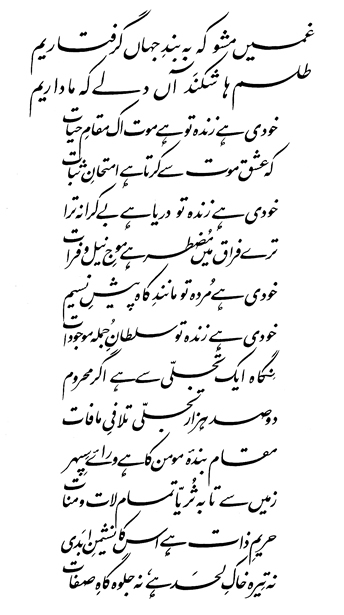 غمیں مشو کہ بہ بندِ جہاں گرفتاریم
طلسم ہا شکند آں دلے کہ ما داریم
خودی ہے زندہ تو ہے موت اک مقامِ حیات
کہ عشق موت سے کرتا ہے امتحانِ ثبات
خودی ہے زندہ تو دریا ہے بے کرانہ ترا
ترے فراق میں مُضطر ہے موجِ نیل و فرات
خودی ہے مُردہ تو مانندِ کاہِ پیشِ نسیم
خودی ہے زندہ تو سلطانِ جملہ موجودات
نگاہ ایک تجلّی سے ہے اگر محروم
دو صد ہزار تجلّی تلافیِ مافات
مقام بندۂ مومن کا ہے ورائے سپہر
زمیں سے تا بہ ثُریّا تمام لات و منات
حریمِ ذات ہے اس کا نشیمنِ ابدی
نہ تیرہ خاکِ لحد ہے، نہ جلوہ گاہِ صفات